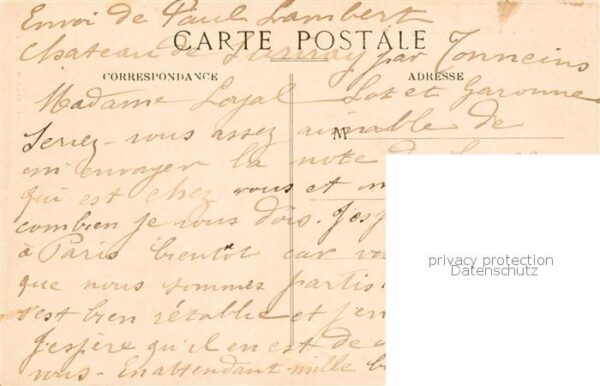 Envoi de Paul Lambert
Chateau de par Tonneins
CARTE POSTALE
CORRESPONDANCE ADRESSE
Madame Loyal Lot et Garonne
Seriez-vous assez aimable de
M
m'envoyer la note de
qui est chez vous et
combien je vous dois. J'esp
à Paris bientot car
que nous sommes partis
s'est bien rétablie et j'en
J'espère qu'il en est de
vous. En attendant mille b
privacy protection
Datenschutz